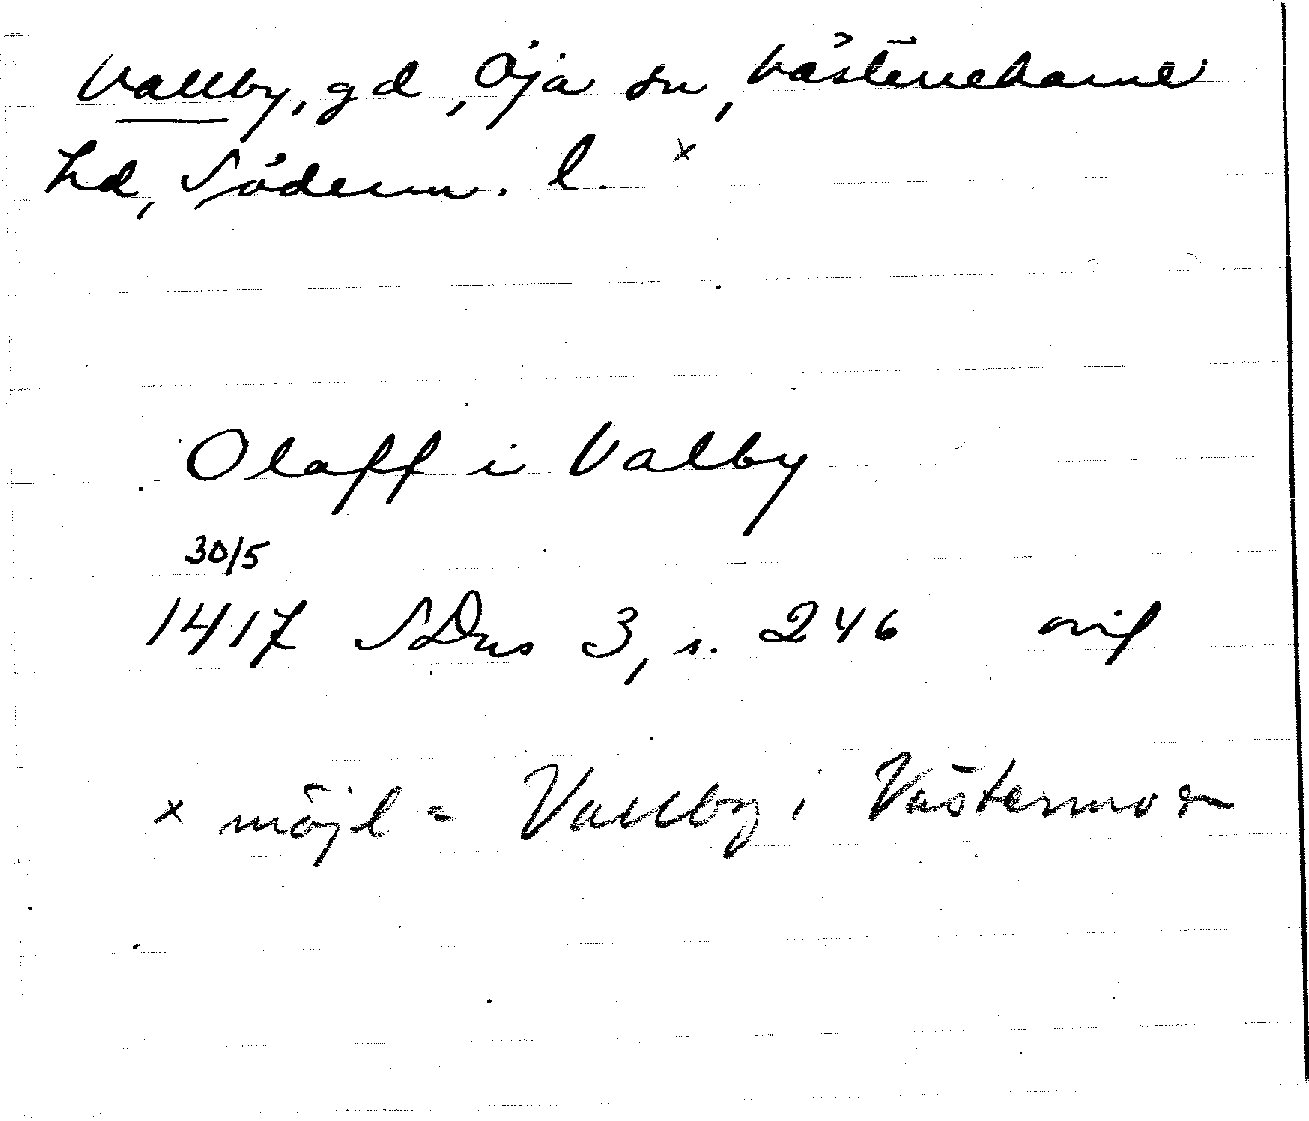 Vallby, gd, Öja sn, Västerrekarne
hd, Söderm. l. x
Olaff i Valby
30/5
1417 SDns 3, s. 246
x möjl = Vallby i Västermo sn